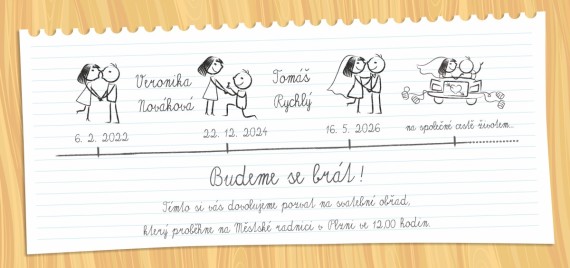 Veronika
Nováková
Tomáš
Rychlý
6. 2. 2022
22. 12. 2024
16. 5. 2026
na společné cestě životem...
Budeme se brát!
Tímto si vás dovolujeme pozvat na svatební obřad,
který proběhne na Městské radnici v Plzni ve 12.00 hodin.